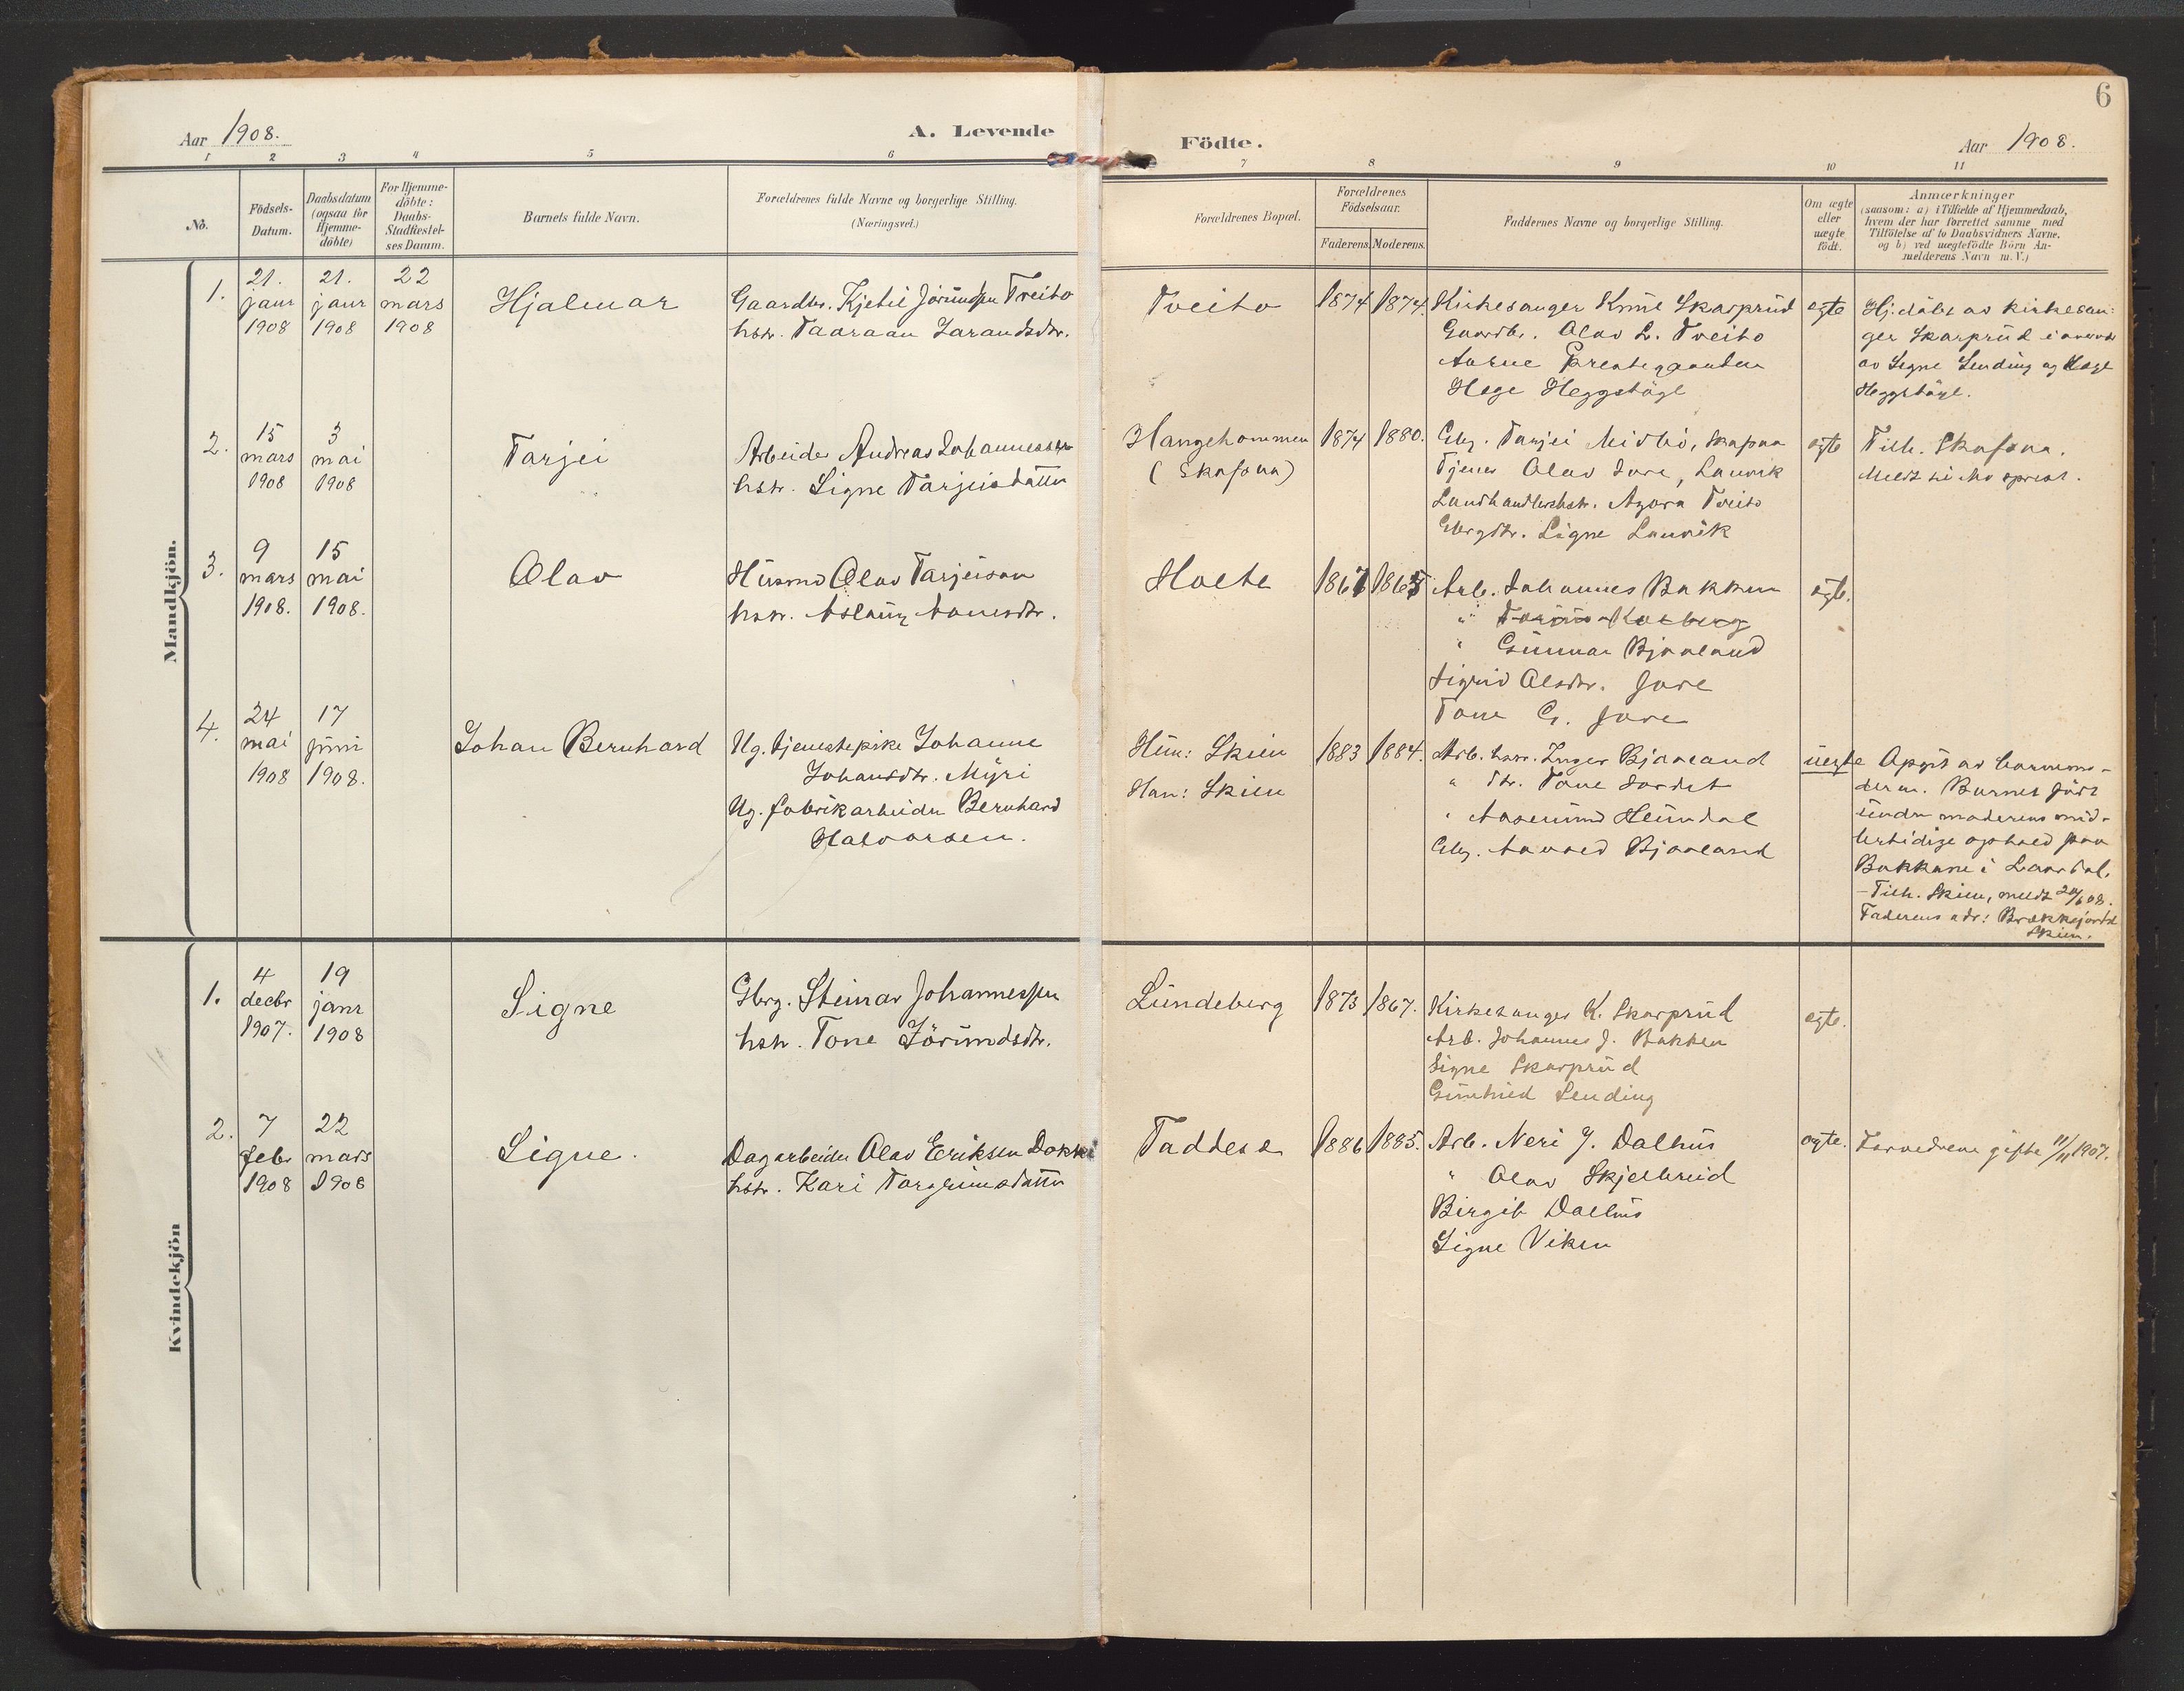 6
Aar 1908.
A. Levende
Födte.
Aar 1908.
1 2 3 4 5 6 7 8 9 10 11
No.
Födsels-
Datum.
Daabsdatum
(ogsaa for
Hjemme-
döbte)
For Hjemme-
döbte:
Daabs-
Stadfæstel-
ses Datum.
Barnets fulde Navn.
Forældrenes fulde Navne og borgerlige Stilling.
(Næringsvei.)
Forældrenes Bopæl.
Forældrenes
Födselsaar.
Faderens. Moderens.
Faddernes Navne og borgerlige Stilling.
Om ægte
eller
uægte
födt.
Anmærkninger
(saasom: a) i Tilfælde af Hjemmedaab,
hvem der har forrettet samme med
Tilföielse af to Daabsvidners Navne,
og b) ved uægtefödte Börn An-
melderens Navn m. V.)
Mandkjön.
1.
21.
janr
1908
21.
janr
1908
22
mars
1908
Hjalmar
Gaardbr. Kjetil Jörundsen Tveito
hstr. Taaraan Tarandsdtr.
Tveito
1874 1874.
Kirkesanger Knut Skarprud
Gaardbr. Olav L. Tveito
Aasne
Hege Heggstöyl
egte
Hj.döbt av kirkesan-
ger Skarprud i
av Signe Lending og Hege
Heggstöyl.
2.
15
mars
1908
3
mai
1908
Tarjei
Arbeider Andreas Johannessen
hstr. Signe Tarjeisdatter
Hangehommen
(Skafsaa)
1874 1880.
Gbr. Tarjei Midbö, Skafsaa
Tjener Olav Jore, Lauvik
Landhandlerhstr. Azora Tveito
Gbrgdtr. Signe Lauvik
egte
Tilh. Skafsaa.
Meldt til Mo sprest.
3.
9
mars
1908.
15
mai
1908.
Olav
Husmd Olav Tarjeison
hstr. Aslaug Aanesdtr.
Holte
1867 1865
Arb. Johannes Bakken
"
" Gunnar Bjaaland
Sigrid Olsdtr. Jore
Tone G. Jore
egte.
4.
24
mai
1908
17
juni
1908.
Johan Bernhard
Ug. tjenestepike Johanne
Johansdtr. Myri
Ug. fabrikarbeider Bernhard
Halvorsen.
Hun: Skien
Han: Skien
1883 1884.
Arb. hstr. Inger Bjaaland
" dtr. Tone Jordet
" Aasmund Heimdal
Gbr. Aavald Bjaaland
uegte
Opgit av barnemo-
deren. Barnet födt
under moderens mid-
lertidige ophold paa
Bakkane i Laardal.
- Tilh. Skien, meldt 20/6 08.
Faderens adr: Brekkejordet
Skien.
Kvindekjön
1.
4
decbr
1907.
19
janr
1908
Signe
Gbrg. Steinar Johannessen
hstr. Tone Jörundsdtr.
Lundeberg
1873 1867.
Kirkesanger K. Skarprud
Arb. Johannes J. Bakken
Signe Skarprud
Gunhild Lending
egte.
2.
7
febr
1908
22
mars
1908
Signe.
Dagarbeider Olav Eriksen Dokki
hstr. Kari Torgrimsdatter
Taddess
1886 1885.
Arb. Neri J. Dalhus
" Olav Skjelbreid
Birgit Dalhus
Signe Viken
egte.
Forældrene gifte 11/11 1907.